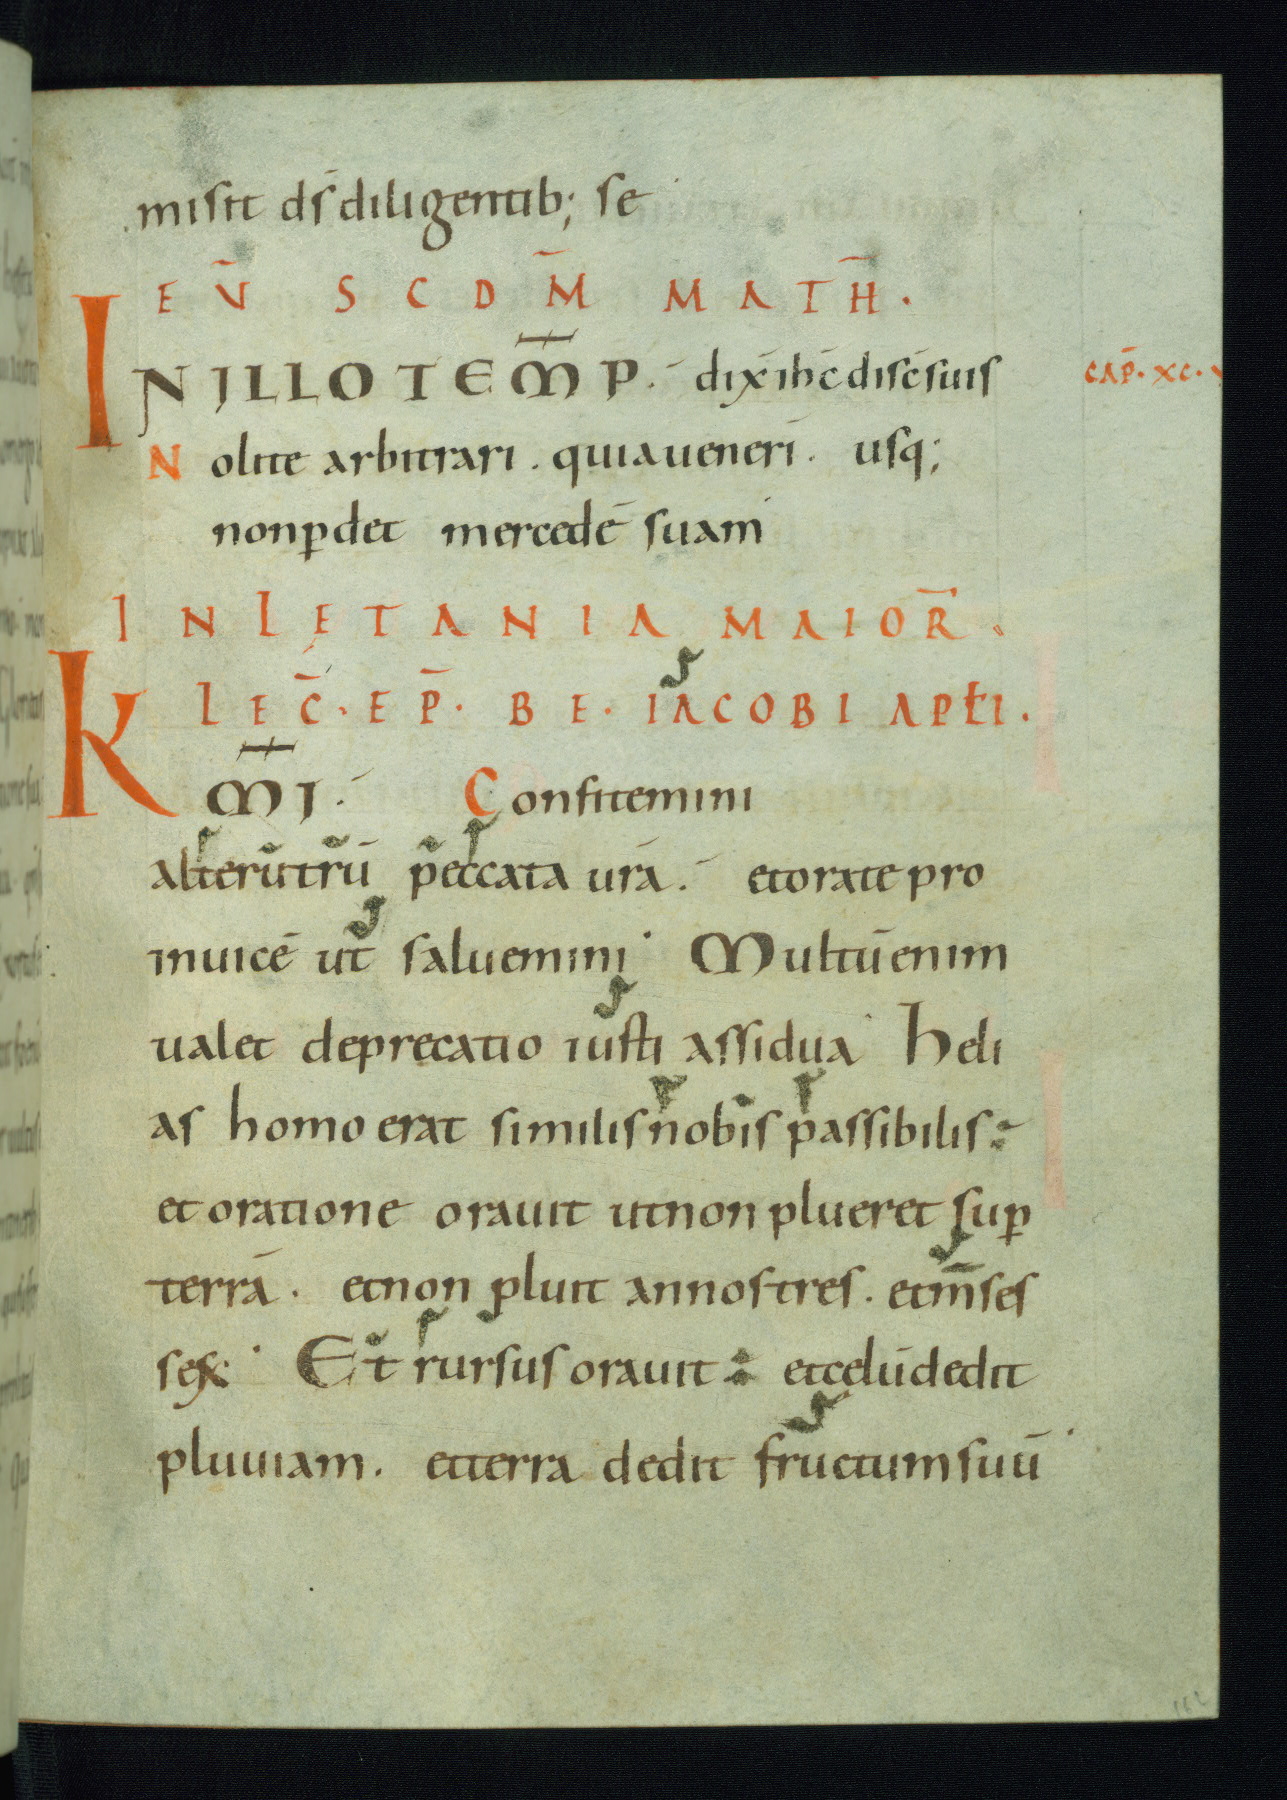 misit ds̄ diligentib; se
EV̄ SCDM̄ MATH̄.
IN ILLO TEM̄P. dix̄ ihc̄ disc̄ suis
CAP̄. XC.
Nolite arbitrari. quia uenerī. usq;
non ꝑdet mercedē suam
IN LETANIA MAIOR̄.
LEC̄. EP̄. BE. IACOBI APŁI.
KM̄I. Confitemini
alterūtrū peccata urā. et orate pro
inuicē ut saluemini Multū enim
ualet deprecatio iusti assidua heli
as homo erat similis nobis passibilis:
et oratione orauit ut non plueret suꝑ
terrā. et non pluit annos tres. et m̄ses
sex Et rursus orauit: et cęlū dedit
pluuiam. et terra dedit fructum suū